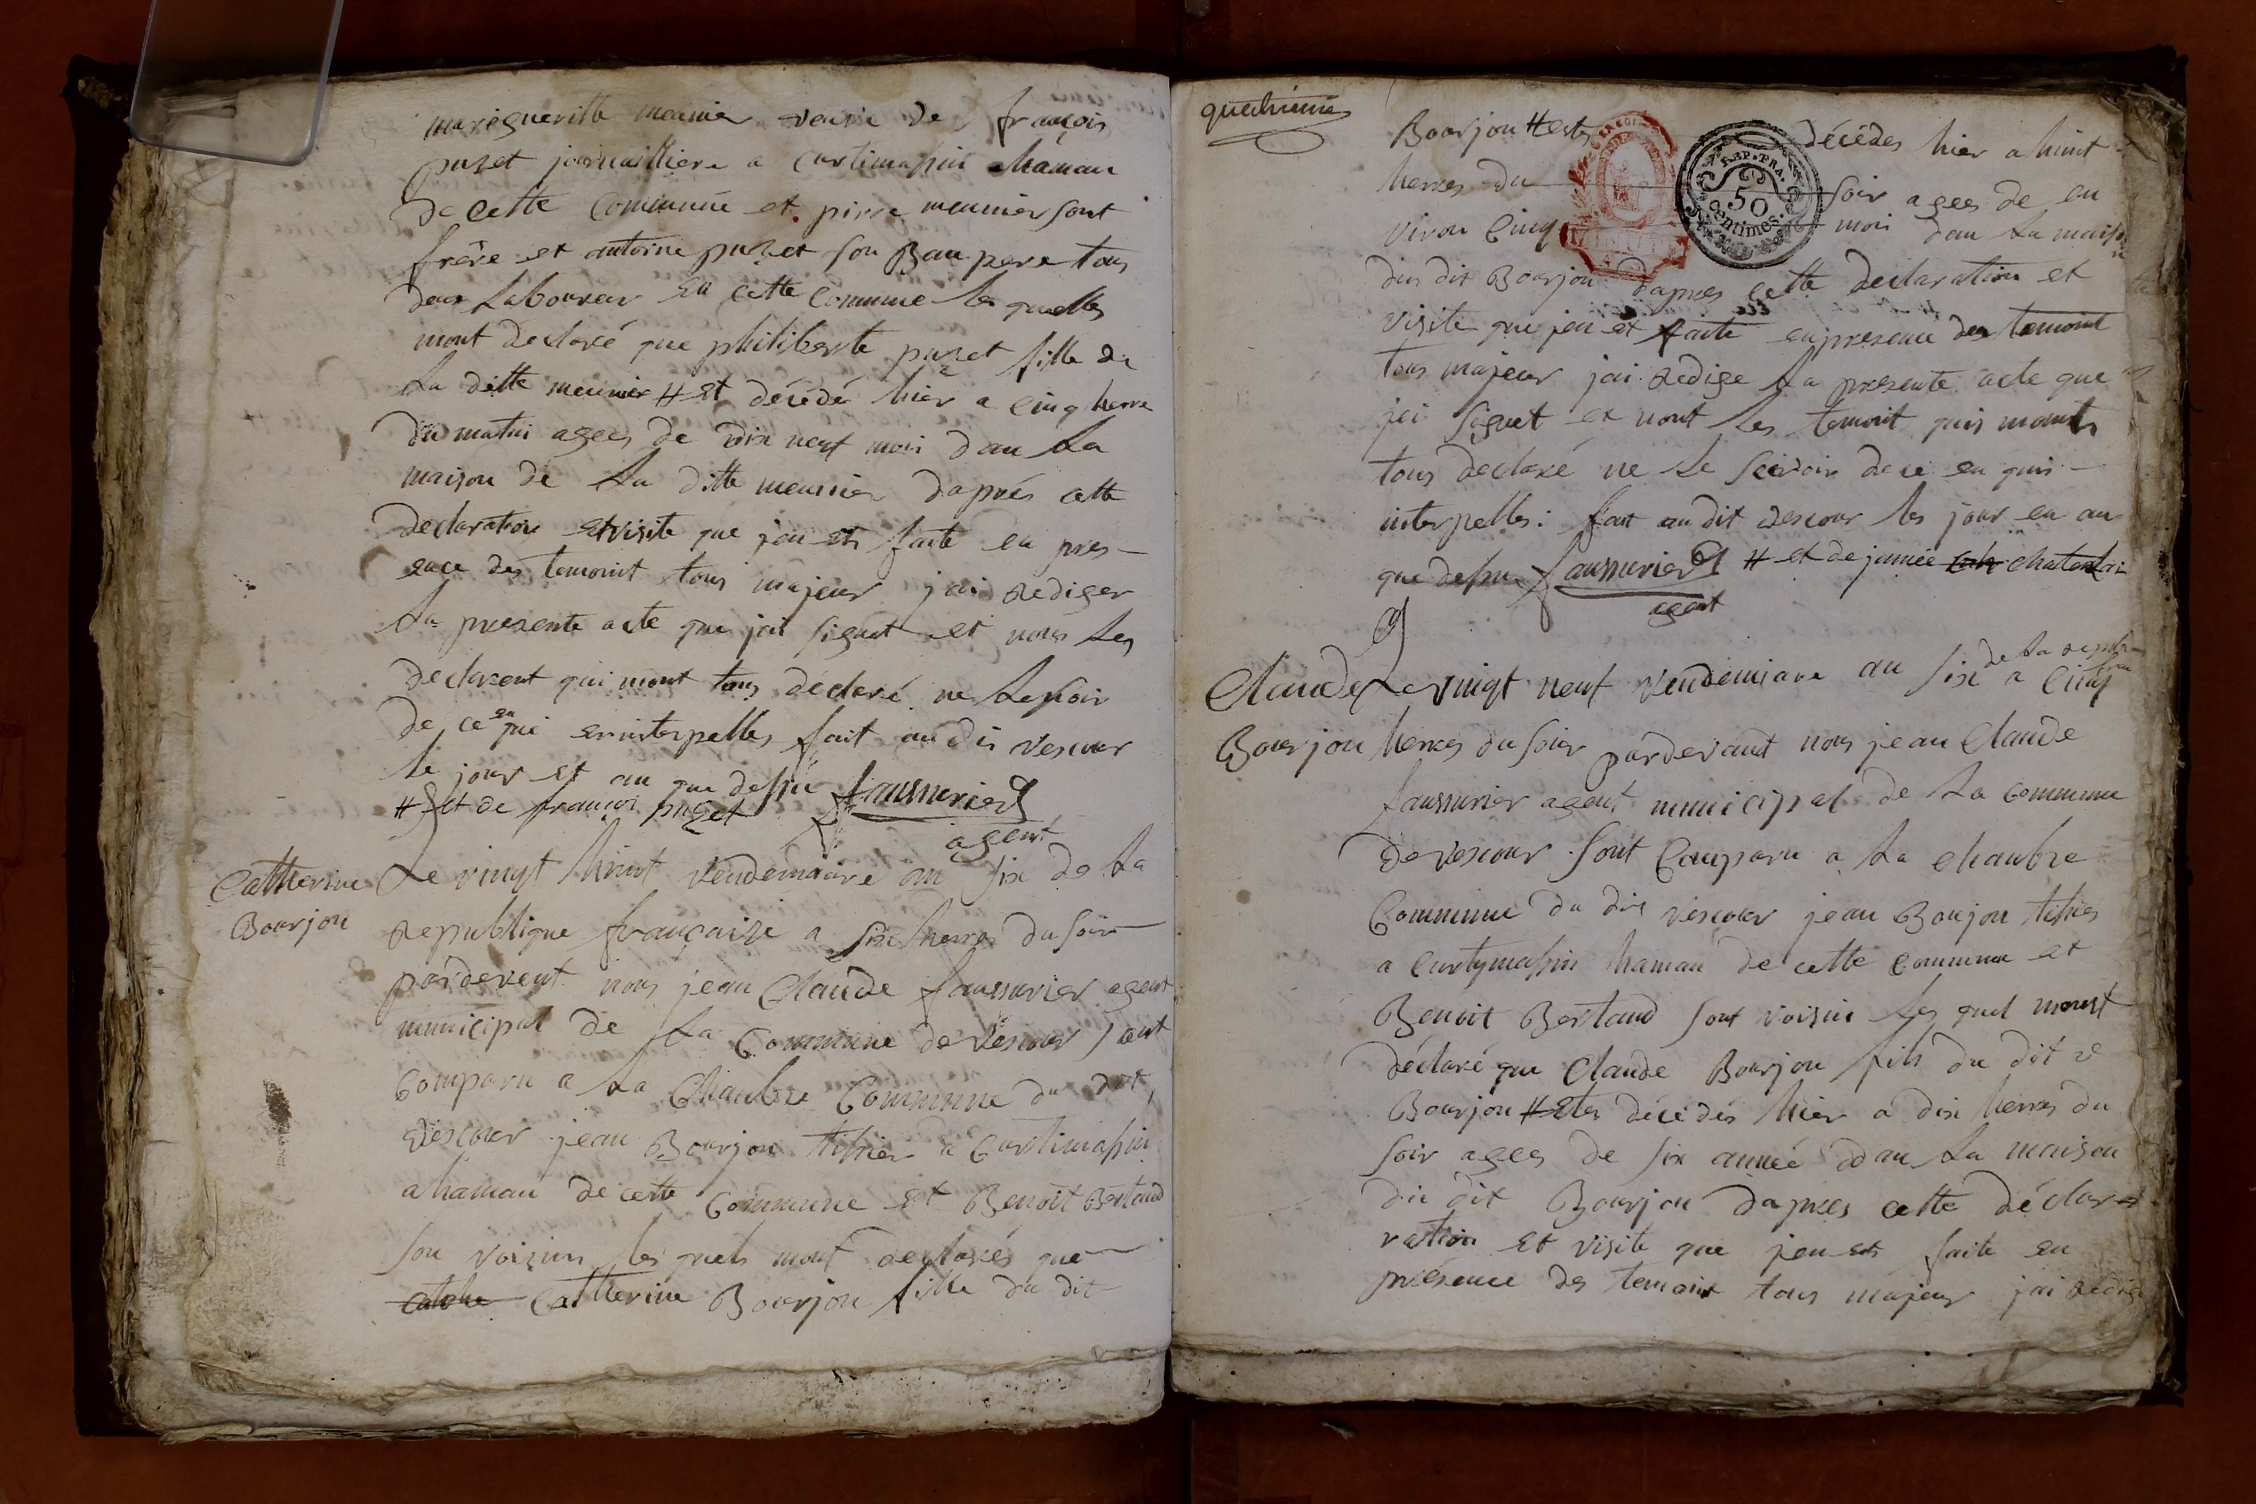 margueritte meunier veuve de françois
puzet journailliere a curtimassin hamau
de cette commune et pirre meunier sont
frère et antoine puzet son Beau pere tous
deux Laboureur En cette Commune les quelles
mont declaré que philiberte puzet fille de
La ditte meunier # Est décédé hier a cinq herre
du matin agees de dix neuf moi dan La
maison de La ditte meunier daprés cette
declaration et visite que jeu et faite en pres-
ence des temoint tous majeur jai Rediger
La presente acte que jai signet et nons Les
declarent qui mont tous declaré ne Le savoir
de ce en qui en interpelles fait au dit Vescour
le jour et an que dessu faussurier
# Et de françoi puzet
agent
Catherine
Bourjon
Le vingt huit Vendemiaire an six de La
Republique françaize a six herre du soir
pardevent nous jean Claude faussurier agent
municipal de La Commune de Vescour sont
comparu a La Chanbre Commune du dit
Vescour jean Bourjon tissier a Curtimassin
a hamau de cette Commune Et Benoit Bertaud
son voizins les quels mont declarés que
catche Catherine Bourjon fille du dit
quatrieme
Bourjon # est décédes hier a huit
herres du soir agees de en
viron cinq moi dan La maison
du dit Bourjon daprès cette declaration et
visite que jeu et faite en presence des temoint
tous majeur jai Redige La presente acte que
jai signet et nont les temoint quis monts
tous declaré ne Le scavoir de ce en quis
interpelles: fait au dit Vescour les jour en an
que dessu faussurier # et de jannée chatelain
agent
REP. FRA.
50
centimes.
Claude
Bourjon
Le vingt neuf Vendemiare an six de La republi a cinq
herres du soir pardevant nous jean Claude
faussurier agent municipal de La commune
de Vescour sont Comparu a La chanbre
Commune du dit Vescour jean Boujon tissier
a Curtymassin hamau de cette commune et
Benoit Bertaud sont voisin Les quel mont
déclaré que Claude Bourjon fils du dit
Bourjon # Etes décédés hier a dix herres du
soir agees de six année dan La maison
du dit Bourjon daprès cette déclar
ration Et visite que jeu et faite en
présence des temoint tous majeur jai redig